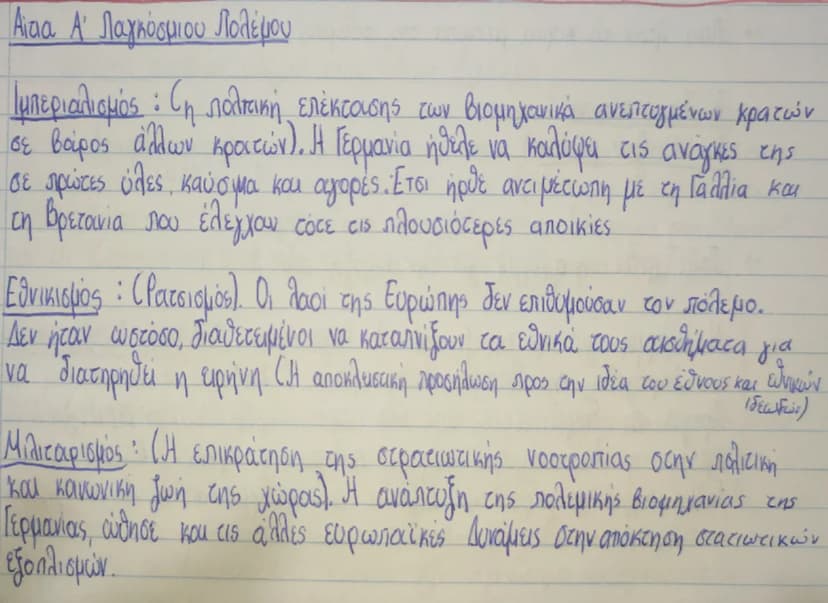 Αίτια Α' Παγκόσμιου Πολέμου
Ιμπεριαλισμός : (η πολιτική επέκτασης των βιομηχανικά ανεπτυγμένων κρατών
σε βάρος άλλων κρατών). Η Γερμανία ήθελε να καλύψει τις ανάγκες της
σε πρώτες ύλες, καύσιμα και αγορές. Έτσι ήρθε αντιμέτωπη με τη Γαλλία και
τη Βρετανία που έλεγχαν τότε τις πλουσιότερες αποικίες
Εθνικισμός : (Ρατσισμός). Οι λαοί της Ευρώπης δεν επιθυμούσαν τον πόλεμο.
Δεν ήταν ωστόσο, διατεθειμένοι να καταπνίξουν τα εθνικά τους αισθήματα για
να διατηρηθεί η ειρήνη (Η αποκλειστική προσήλωση προς την ιδέα του έθνους και εθνικών
ιδεωδών)
Μιλιταρισμός : (Η επικράτηση της στρατιωτικής νοοτροπίας στην πολιτική
και κοινωνική ζωή της χώρας). Η ανάπτυξη της πολεμικής βιομηχανίας της
Γερμανίας, ώθησε και τις άλλες ευρωπαϊκές Δυνάμεις στην απόκτηση στατιωτικών
εξοπλισμών.